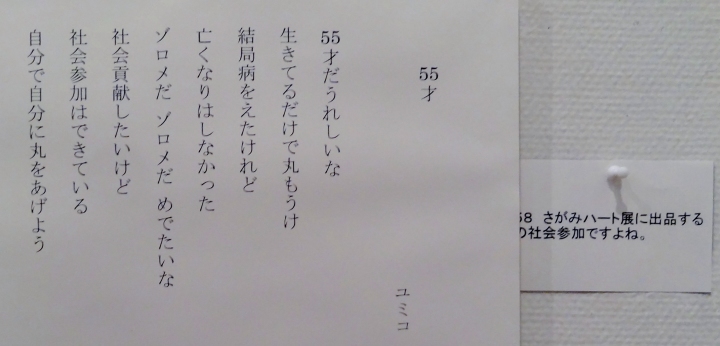 55才
ユミコ
55才だうれしいな
生きてるだけで丸もうけ
結局病をえたけれど
亡くなりはしなかった
ゾロメだ ゾロメだ めでたいな
社会貢献したいけど
社会参加はできている
自分で自分に丸をあげよう
58 さがみハート展に出品する
の社会参加ですよね。